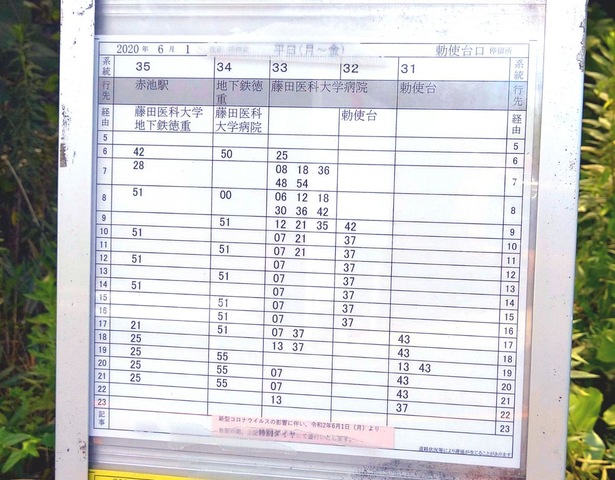 2020 年 6 月 1 平日(月～金) 勅使台口 停留所
系統 35 34 33 32 31 系統
行先 赤池駅 地下鉄徳重 藤田医科大学病院 勅使台 行先
経由 藤田医科大学 地下鉄徳重 藤田医科大学病院 勅使台 経由
5 5
6 42 50 25 6
7 28 08 18 36 7
48 54
8 51 00 06 12 18 8
30 36 42
9 51 12 21 35 42 9
10 51 07 21 37 10
11 51 07 21 37 11
12 51 07 37 12
13 51 07 37 13
14 51 07 37 14
15 51 07 37 15
16 51 07 37 16
17 21 51 07 37 43 17
18 25 13 37 43 18
19 25 55 13 43 19
20 25 55 07 43 20
21 25 55 07 43 21
22 13 37 22
23 23
記事 新型コロナウイルスの影響に伴い、令和2年6月1日（月）より
特別ダイヤ
道路状況等により遅延が生じることがあります